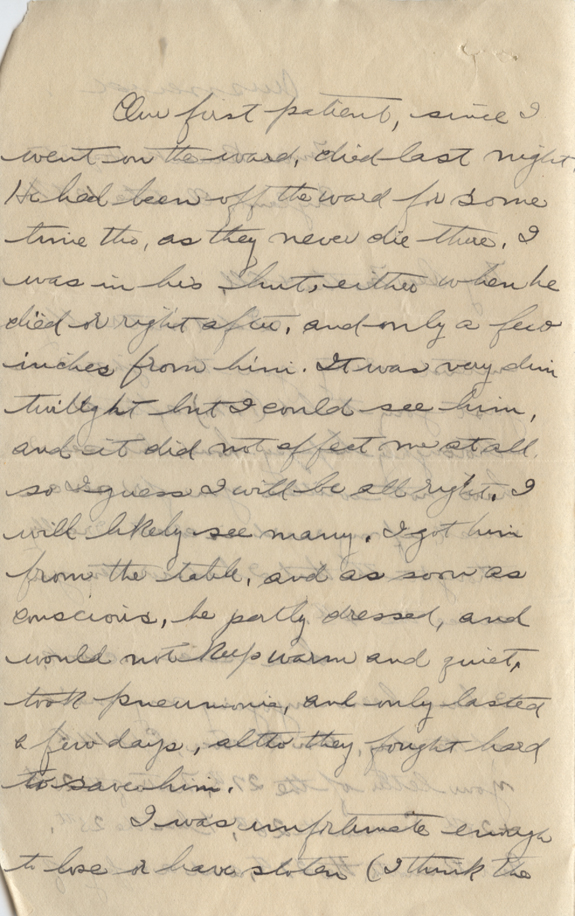 Our first patient, since I
went on the ward, died last night.
He had been off the ward for some
time tho, as they never die there. I
was in his hut, either when he
died or right after, and only a few
inches from him. It was very dim
twilight but I could see him,
and it did not affect me at all.
so I guess I will be all right. I
will likely see many. I got him
from the table, and as soon as
conscious, he partly dressed, and
would not keep warm and quiet,
took pneumonia, and only lasted
a few days, altho they fought hard
to save him.
I was unfortunate enough
to lose or have stolen (I think the